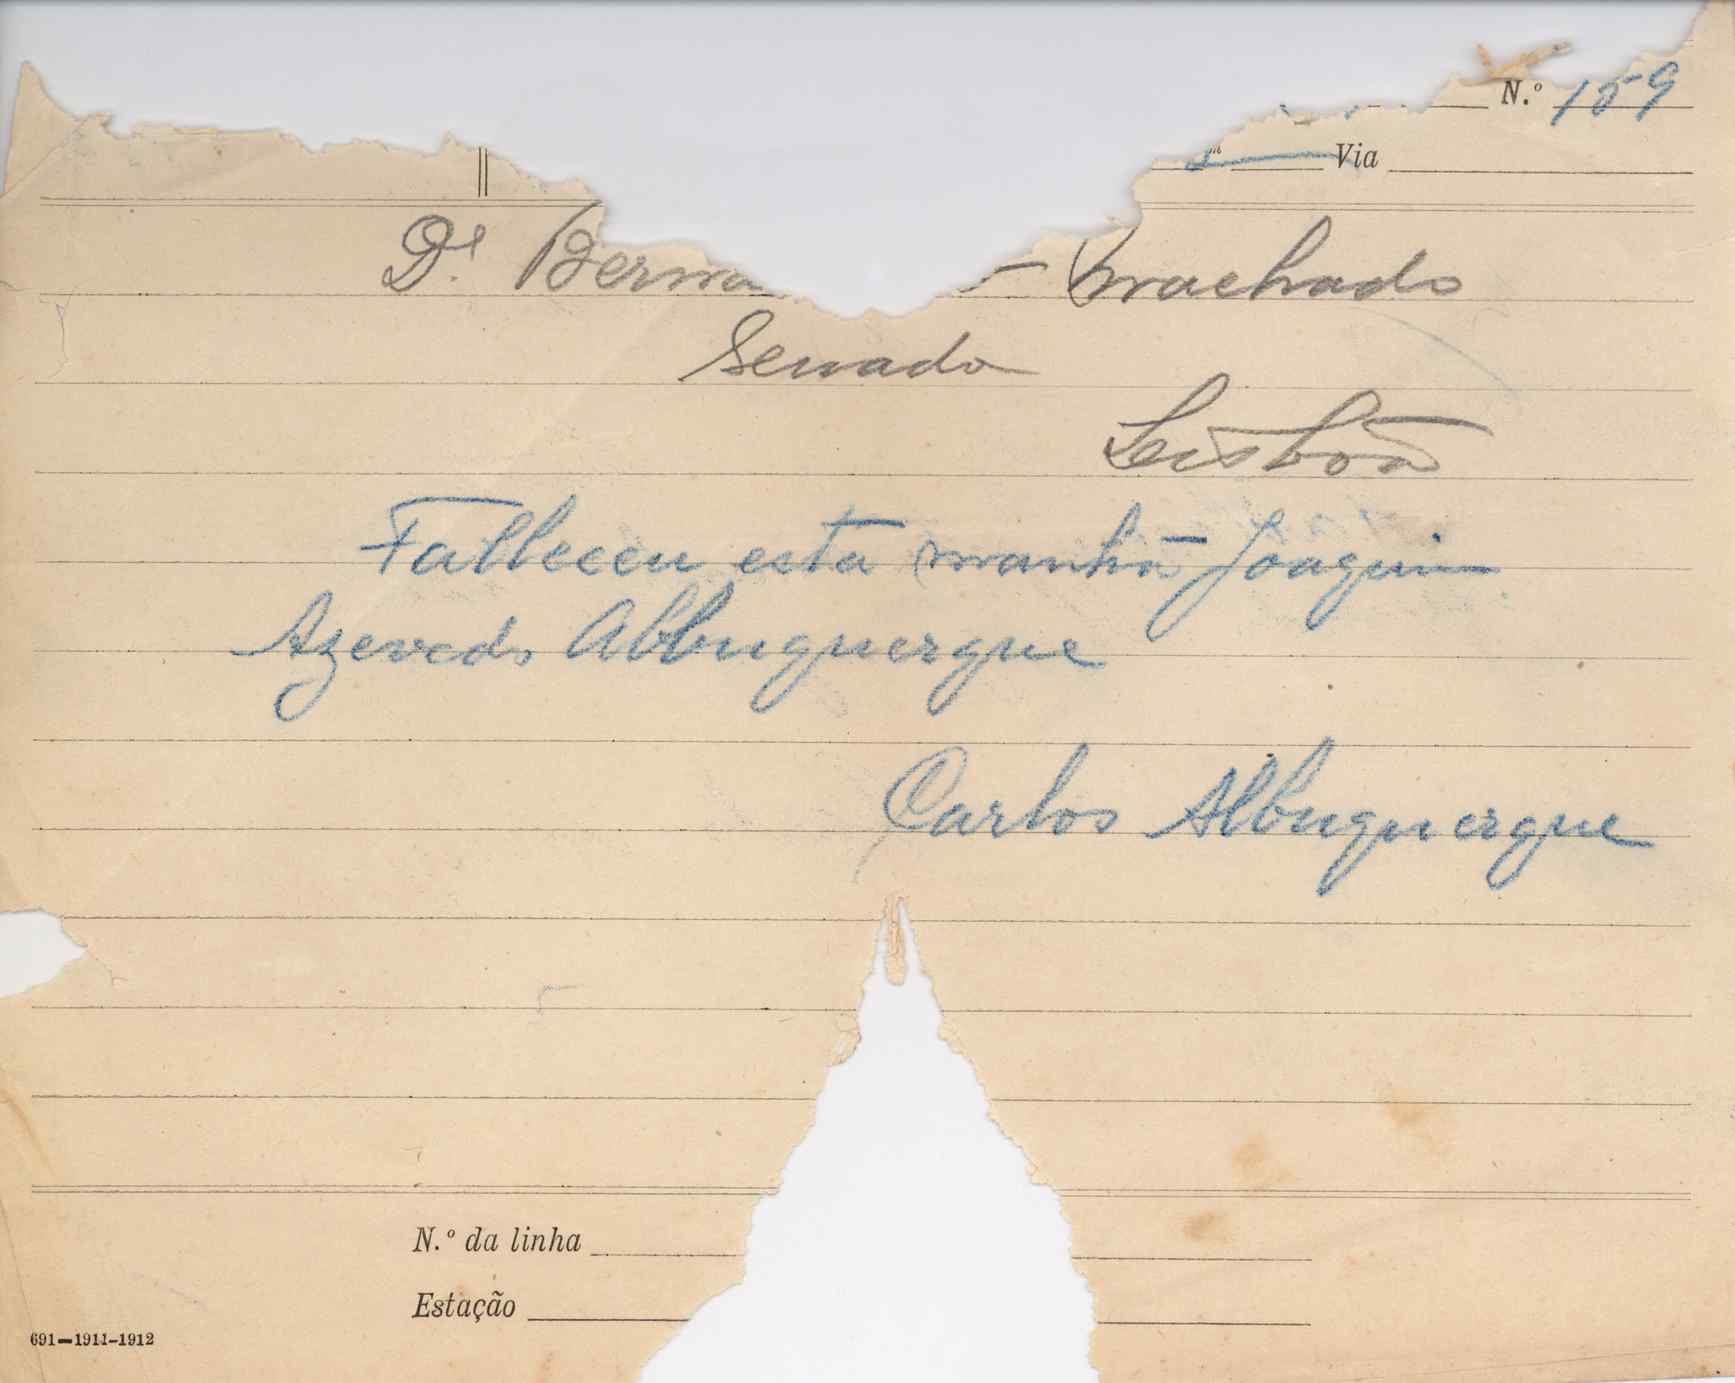 N.º 159
Via
Dr Berna Machado
Senado
Lisboa
Falleceu esta manhã Joaquim
Azevedo Albuquerque
Carlos Albuquerque
N.º da linha
Estação
691—1911-1912